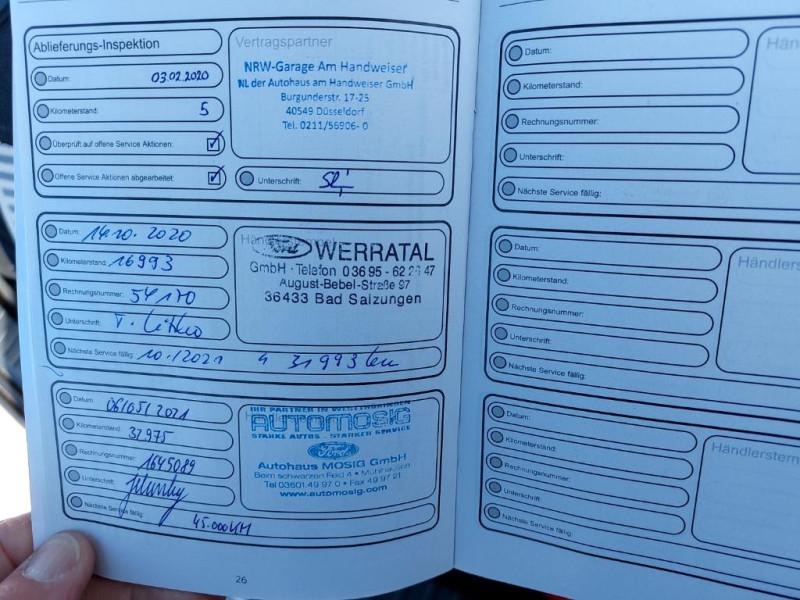 Ablieferungs-Inspektion
Datum: 03.02.2020
Kilometerstand: 5
Überprüft auf offene Service Aktionen: ☑
Offene Service Aktionen abgearbeitet: ☑
Vertragspartner
NRW-Garage Am Handweiser
NL der Autohaus am Handweiser GmbH
Burgunderstr. 17-25
40549 Düsseldorf
Tel. 0211/56906-0
Unterschrift:
Datum: 14.10.2020
Kilometerstand: 16993
Rechnungsnummer: 54170
Unterschrift:
Nächste Service fällig: 10/2021 31993 km
Ford WERRATAL
GmbH · Telefon 03695-62 26 47
August-Bebel-Straße 97
36433 Bad Salzungen
Datum: 06/05/2021
Kilometerstand: 32975
Rechnungsnummer: 1645089
Unterschrift:
Nächste Service fällig: 45.000KM
IHR PARTNER IN WESTTHÜRINGEN
AUTOMOSIG
STARKE AUTOS - STARKER SERVICE
Ford
Autohaus MOSIG GmbH
Beim schwarzen Feld 4 • Mühlhausen
Tel 03601.49 97 0 • Fax 49 97 21
www.automosig.com
26
Datum:
Kilometerstand:
Rechnungsnummer:
Unterschrift:
Nächste Service fällig:
Hän
Datum:
Kilometerstand:
Rechnungsnummer:
Unterschrift:
Nächste Service fällig:
Händlerst
Datum:
Kilometerstand:
Rechnungsnummer:
Unterschrift:
Nächste Service fällig:
Händlerstem